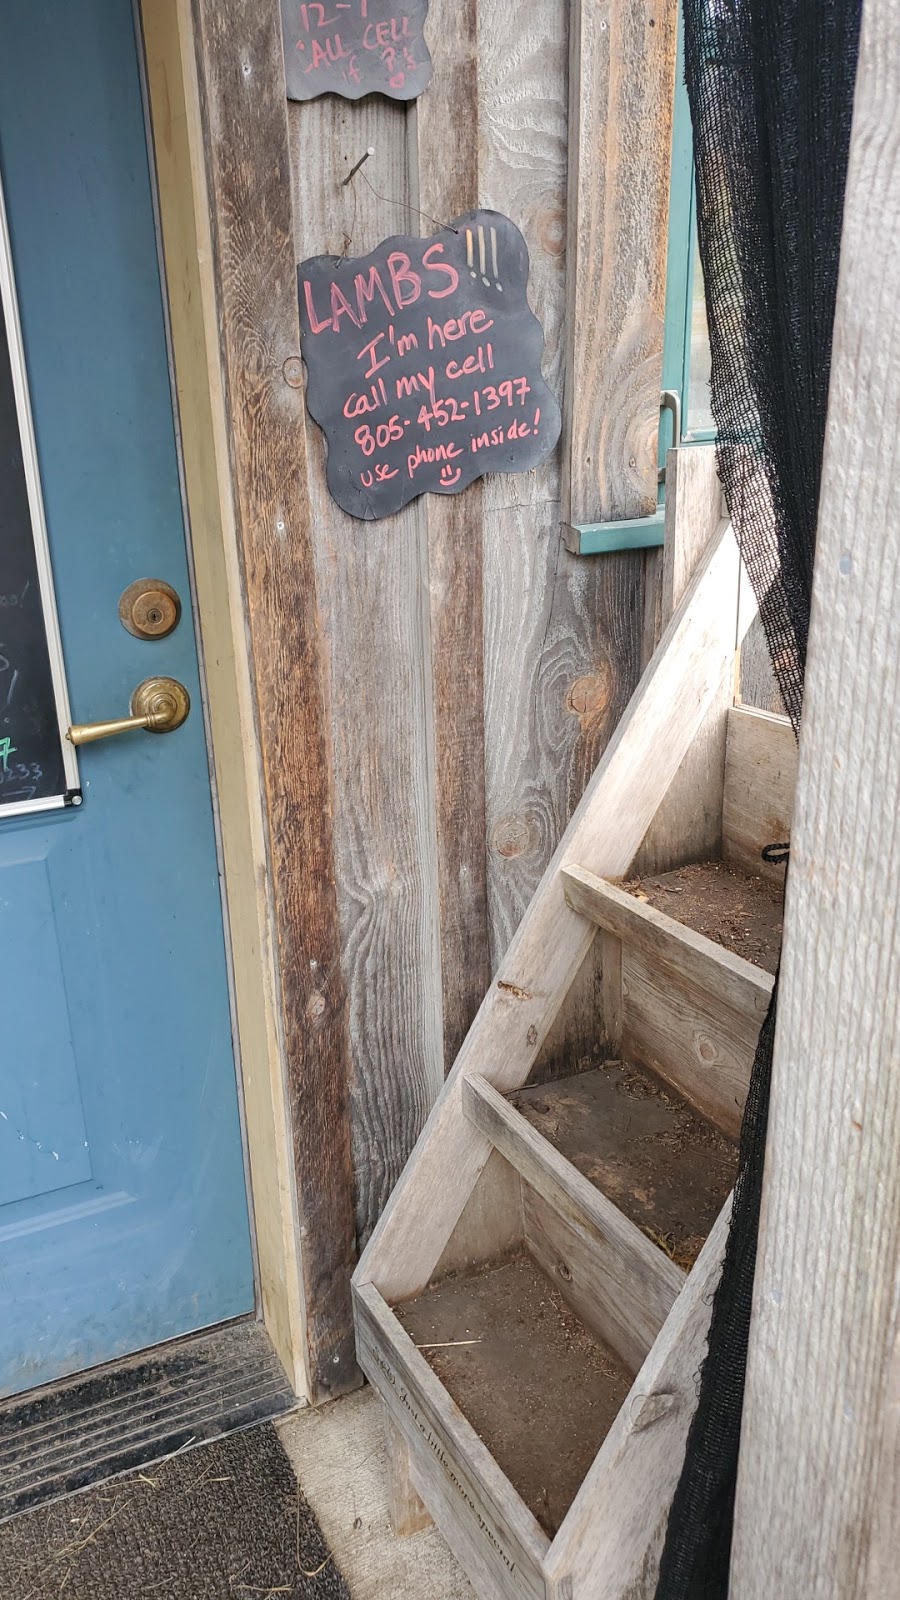 12-1
CALL CELL
if ?'s
LAMBS!!!
I'm here
call my cell
805-452-1397
use phone inside!
7
0233
Just a little more special